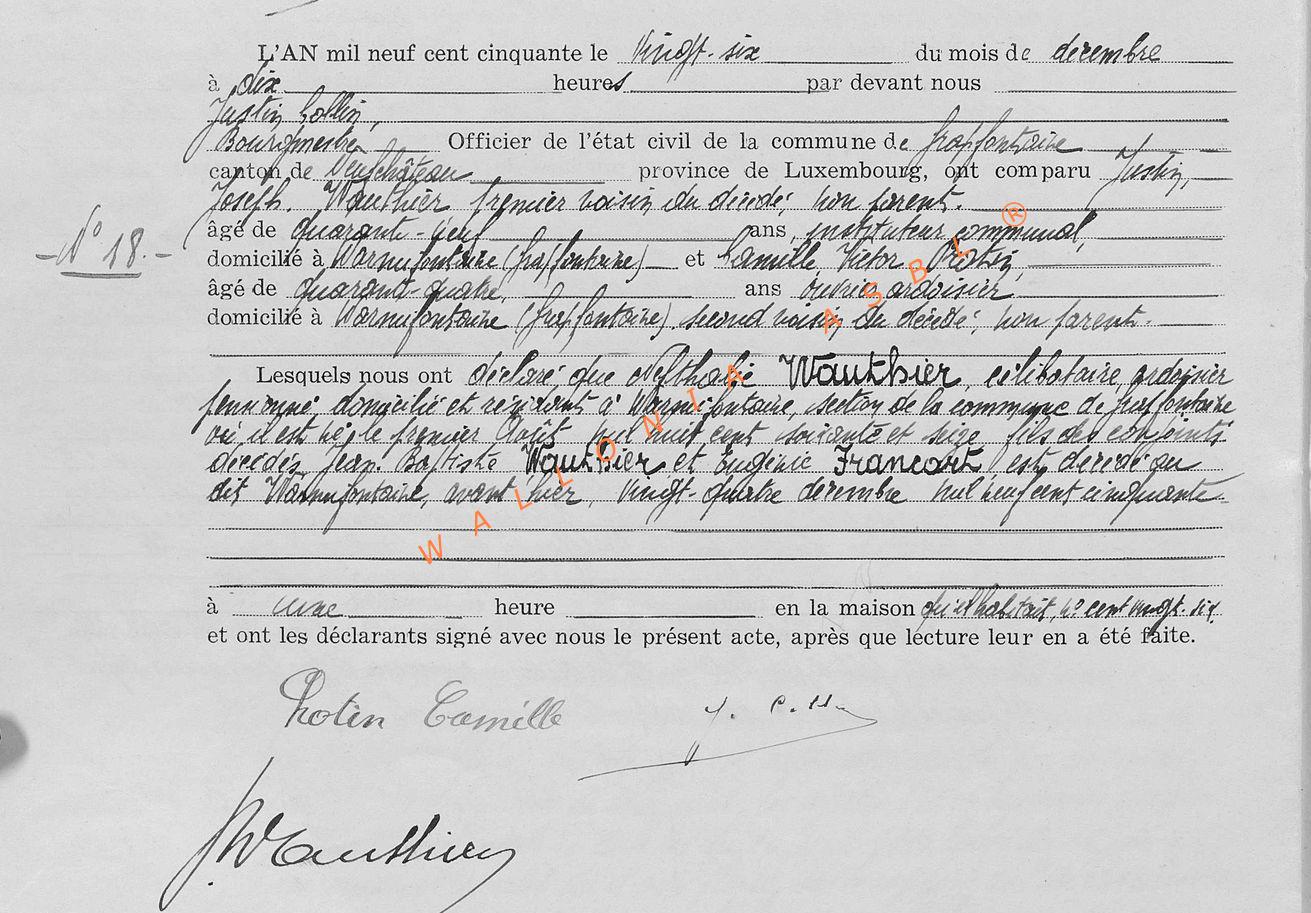 L'AN mil neuf cent cinquante le vingt-six du mois de décembre
à dix heures par devant nous
Justin Collin,
Bourgmestre Officier de l'état civil de la commune de Grapfontaine
canton de Neufchâteau province de Luxembourg, ont comparu Justin,
Joseph. Wauthier premier voisin du décédé, non parent.
- N° 18. -
âgé de quarante-neuf ans, instituteur communal,
domicilié à Warmifontaine (Grapfontaine) et Camille Victor Protin,
âgé de quarante-quatre, ans ouvrier ardoisier,
domicilié à Warmifontaine (Grapfontaine) second voisin du décédé, non parent.
Lesquels nous ont déclaré que Nephtalie Wauthier, célibataire, ardoisier
pensionné, domicilié et résidant à Warmifontaine, section de la commune de Grapfontaine
où il est né, le premier Août mil huit cent soixante et seize fils des conjoints
décédés Jean-Baptiste Wauthier et Eugénie Francart, est décédé au
dit Warmifontaine, avant hier, vingt-quatre décembre mil neuf cent cinquante.
WALLONIA ASBL ®
à une heure en la maison qu'il habitait, n° cent vingt-six.
et ont les déclarants signé avec nous le présent acte, après que lecture leur en a été faite.
Protin Camille J. Collin
J Wauthier